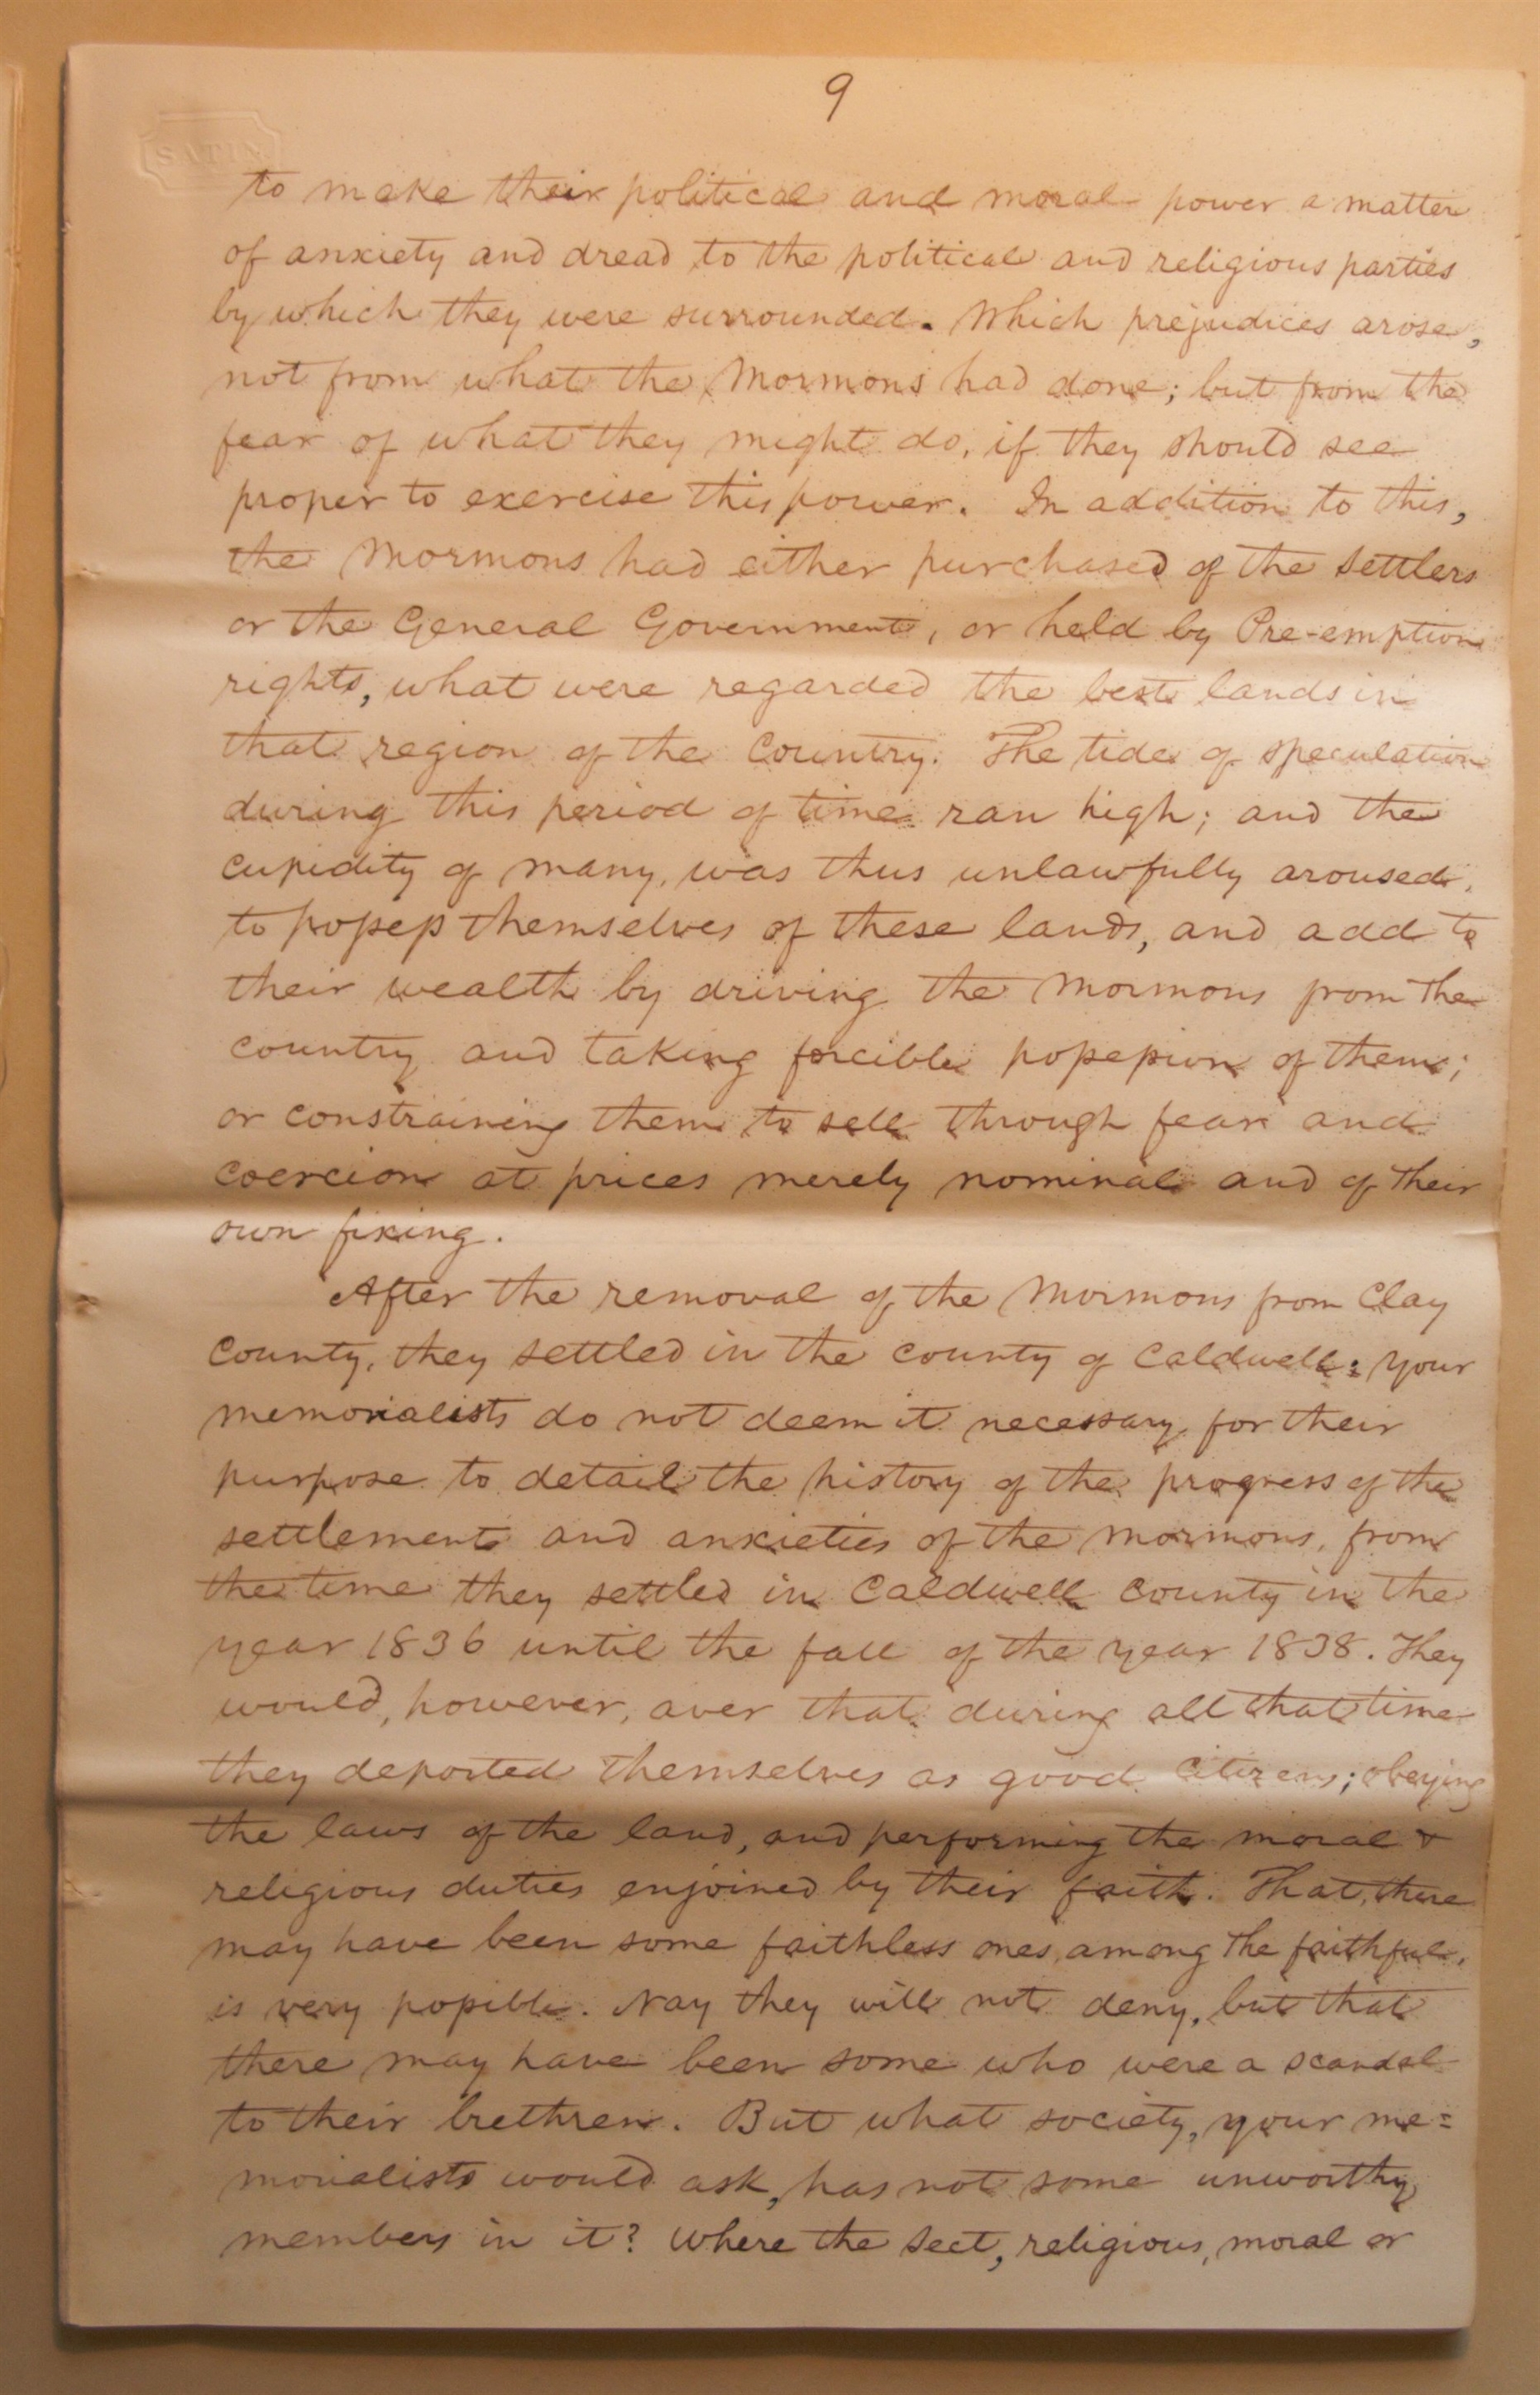 9
SATIN
to make their political and moral power a matter
of anxiety and dread to the political and religious parties
by which they were surrounded. Which prejudices arose,
not from what the Mormons had done; but from the
fear of what they might do, if they should see
proper to exercise this power. In addition to this,
the Mormons had either purchased of the settlers
or the General Government, or held by Pre-emption
rights, what were regarded the best lands in
that region of the Country. The tide of speculation
during this period of time ran high; and the
cupidity of many, was thus unlawfully aroused,
to possess themselves of these lands, and add to
their wealth by driving the Mormons from the
country and taking forcible possession of them;
or constraining them to sell through fear and
coercion at prices merely nominal and of their
own fixing.
After the removal of the Mormons from Clay
County, they settled in the county of Caldwell: your
memorialists do not deem it necessary, for their
purpose to detail the history of the progress of the
settlement and anxieties of the Mormons, from
the time they settled in Caldwell County in the
year 1836 until the fall of the year 1838. They
would, however, aver that during all that time
they deported themselves as good Citizens; obeying
the laws of the land, and performing the moral &
religious duties enjoined by their faith. That, there
may have been some faithless ones, among the faithful,
is very possible. Nay they will not deny, but that
there may have been some who were a scandal
to their brethren. But what society, your me=
morialists would ask, has not some unworthy
members in it? Where the Sect, religious, moral or